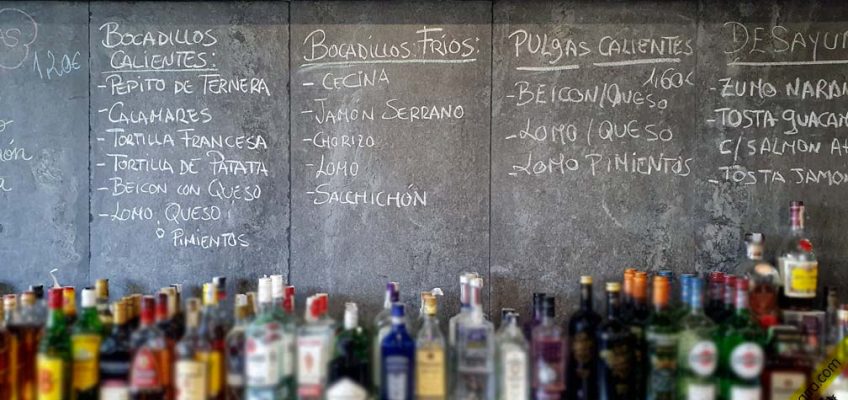 1,20€
BOCADILLOS
CALIENTES:
- PEPITO DE TERNERA
- CALAMARES
- TORTILLA FRANCESA
- TORTILLA DE PATATA
- BEICON CON QUESO
- LOMO, QUESO
ó PIMIENTOS
BOCADILLOS FRÍOS:
- CECINA
- JAMÓN SERRANO
- CHORIZO
- LOMO
- SALCHICHÓN
PULGAS CALIENTES
1,60€
- BEICON/QUESO
- LOMO/QUESO
- LOMO PIMIENTOS
DESAYUN
- ZUMO NARAN
- TOSTA GUACAM
C/SALMON A
- TOSTA JAMON